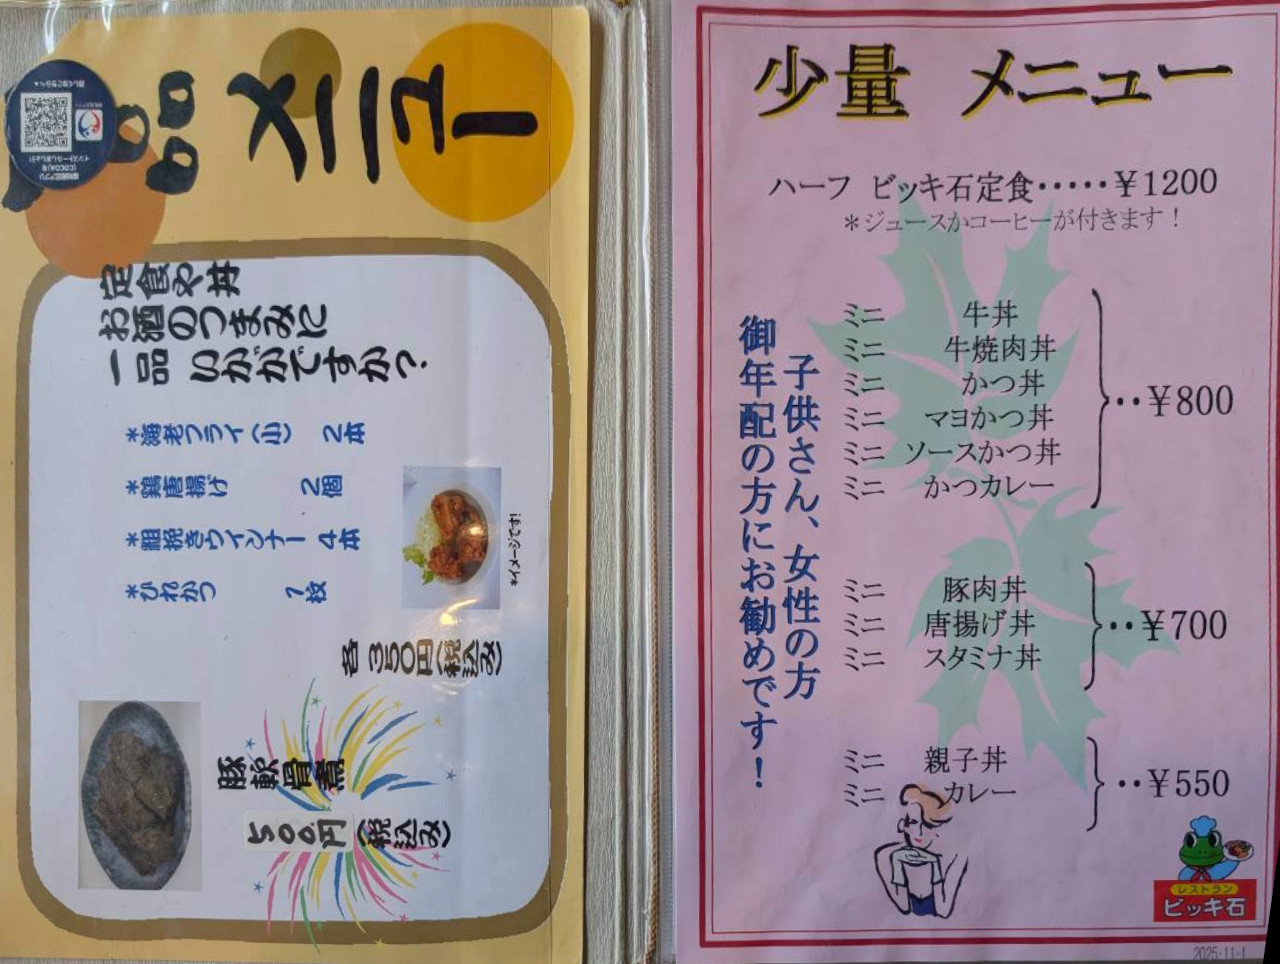 品 メニュー
定食や丼
お酒のつまみに
一品 いかがですか?
*海老フライ(小) 2本
*鶏唐揚げ 2個
*粗挽きウインナー 4本
*ひれかつ 1枚
*イメージです!
各350円(税込み)
豚軟骨煮
500円(税込み)
少量 メニュー
ハーフ ビッキ石定食・・・・・¥1200
*ジュースかコーヒーが付きます!
子供さん、女性の方
御年配の方にお勧めです!
ミニ 牛丼
ミニ 牛焼肉丼
ミニ かつ丼
ミニ マヨかつ丼
ミニ ソースかつ丼
ミニ かつカレー
・・¥800
ミニ 豚肉丼
ミニ 唐揚げ丼
ミニ スタミナ丼
・・¥700
ミニ 親子丼
ミニ カレー
・・¥550
レストラン
ビッキ石
2025.11.1